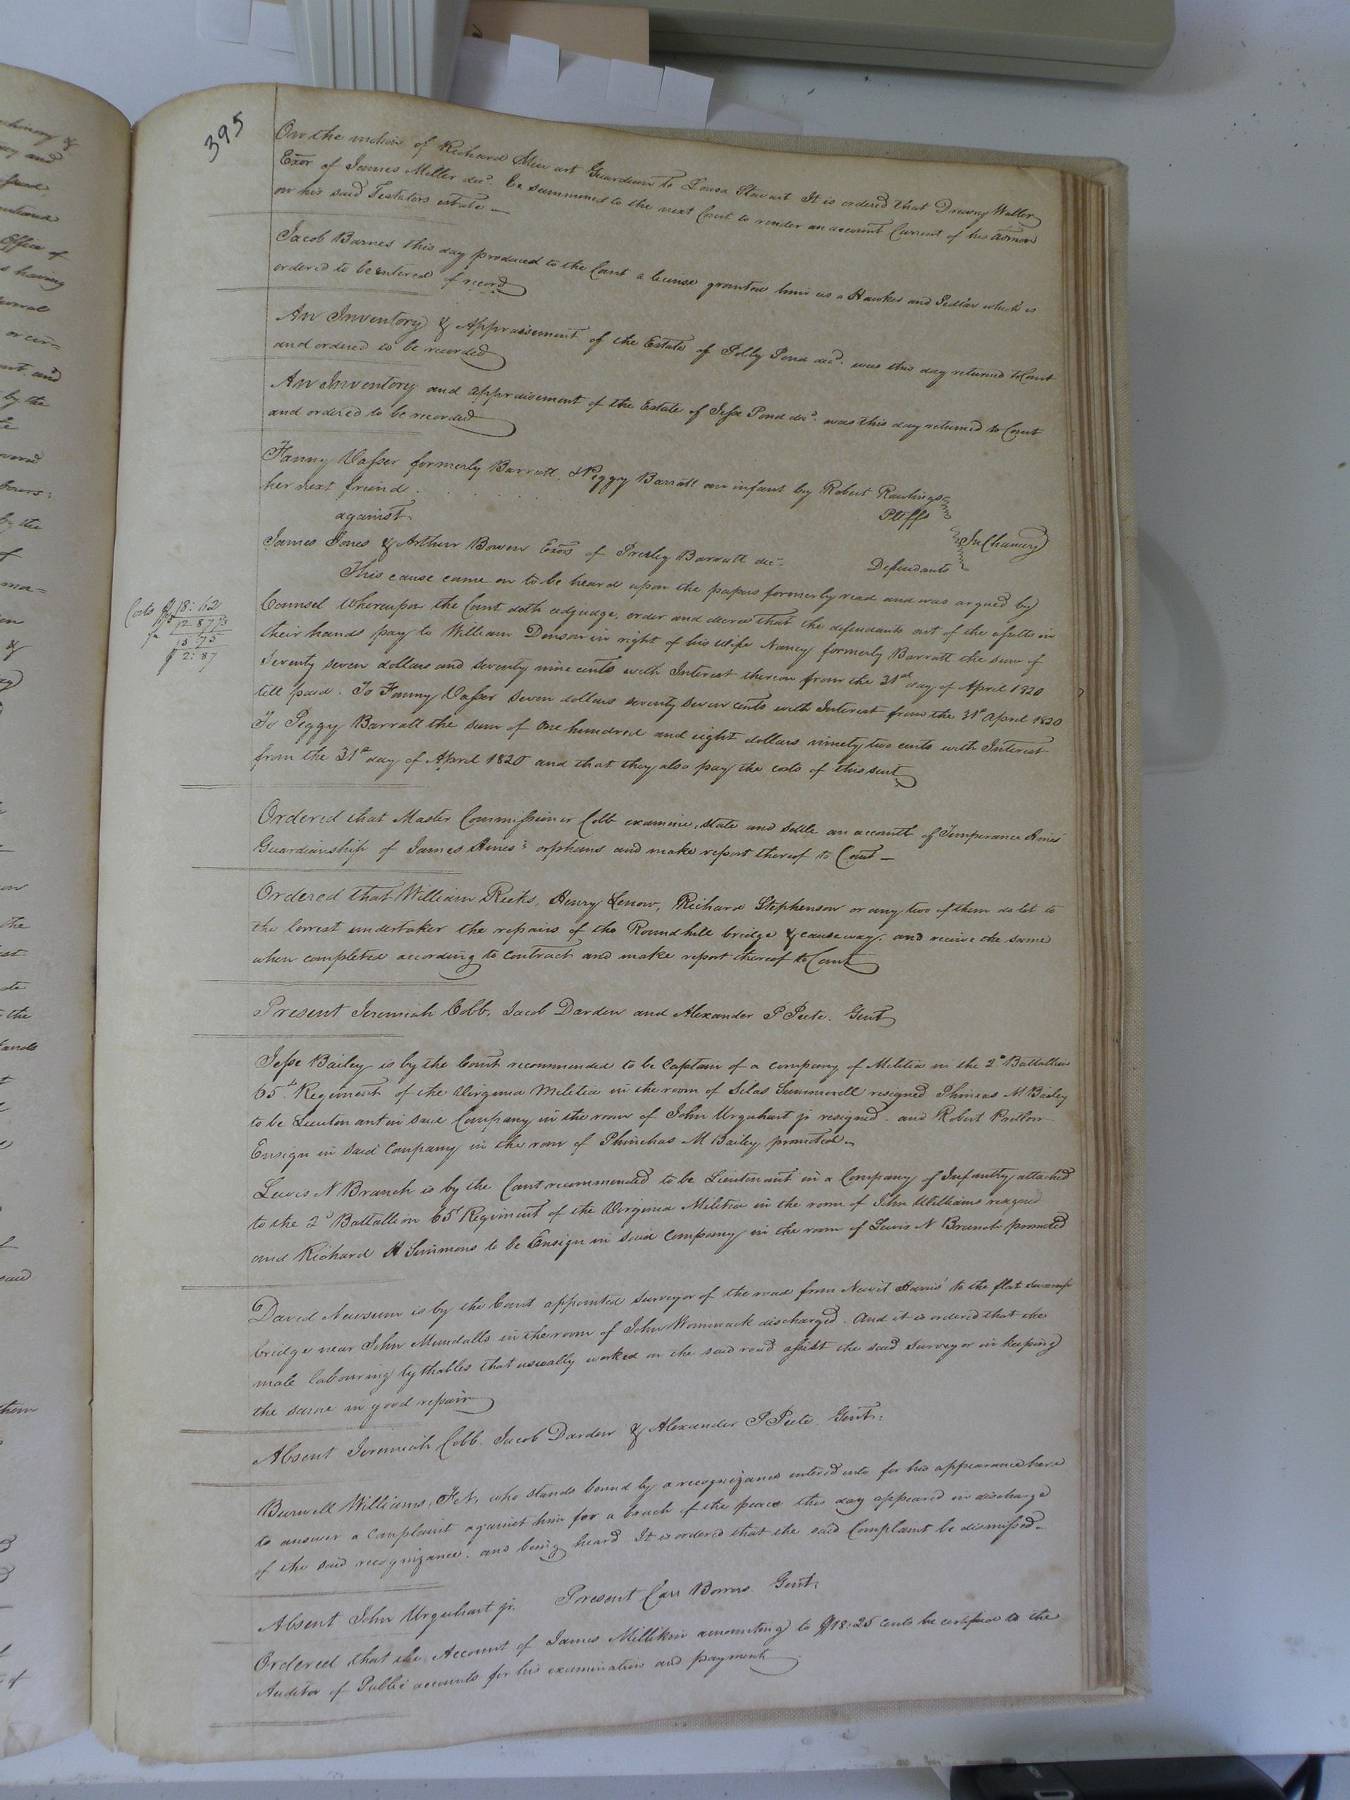 395
On the motion of Richard Stewart Guardian to Louisa Stewart It is ordered that Drewry Weller
Exor of James Miller decd. be summoned to the next Court to render an account Current of his admon
on his said Testators estate —
Jacob Barnes this day produced to the Court a license granted him as a Hawker and Pedlar which is
ordered to be entered of record
An Inventory & Appraisement of the Estate of Polly Pond decd. was this day returned to Court
and ordered to be recorded
An Inventory and appraisement of the Estate of Jesse Pond decd. was this day returned to Court
and ordered to be recorded
Fanny Vasser formerly Barratt, & Peggy Barratt an infant by Robert Rawlings
her next friend . Pltffs
against In Chancery
James Jones & Arthur Bowen Exors of Presley Barratt dec. Defendants
This cause came on to be heard upon the papers formerly read and was argued by
Counsel Whereupon the Court doth adjudge, order and decree that the defendants out of the assetts in
their hands pay to William Denson in right of his wife Nancy formerly Barratt the sum of
Seventy seven dollars and seventy nine cents with Interest thereon from the 31st day of April 1820
till paid. To Fanny Vasser seven dollars seventy seven cents with Interest from the 31st April 1820
To Peggy Barratt the sum of One hundred and eight dollars ninety two cents with Interest
from the 31st day of April 1820 and that they also pay the costs of this suit
Costs $18:62
12.87
2:87
Ordered that Master Commissioner Cobb examine, state and settle an account of Temperance Hines'
Guardianship of James Hines's orphans and make report thereof to Court —
Ordered that William Ricks, Henry Lenow, Richard Stephenson or any two of them do let to
the lowest undertaker the repairs of the Roundhill bridge & causeway, and receive the same
when completed according to contract and make report thereof to Court
Present Jeremiah Cobb, Jacob Darden and Alexander P Peete. Gent
Jesse Bailey is by the Court recommended to be Captain of a company of Militia in the 2d Battalion
65th Regiment of the Virginia Militia in the room of Silas Summerell resigned Phineas M Bailey
to be Lieutenant in said Company in the room of John Urquhart jr resigned. and Robert Pretlow
Ensign in said Company in the room of Phinehas M Bailey promoted —
Lewis N Branch is by the Court recommended to be Lieutenant in a Company of Infantry attached
to the 2d Battallion 65th Regiment of the Virginia Militia in the room of John Williams resigned
and Richard H Simmons to be Ensign in said Company in the room of Lewis N Branch promoted
David Newsum is by the Court appointed surveyor of the road from Newit Harris' to the flat swamp
bridge near John Mundalls in the room of John Wommack discharged. And it is ordered that the
male labouring tythables that usually worked on the said road assist the said Surveyor in keeping
the same in good repair
Absent Jeremiah Cobb, Jacob Darden & Alexander P Peete Gent:
Burwell Williams, who stands bound by a recognizance entered into for his appearance here
to answer a complaint against him for a breach of the peace this day appeared in discharge
of the said recognizance. and being heard It is ordered that the said Complaint be dismissed —
Absent John Urquhart jr. Present Carr Bowers Gent:
Ordered that the Account of James Millikin amounting to $18:25 cents be certified to the
Auditor of Public accounts for his examination and payment